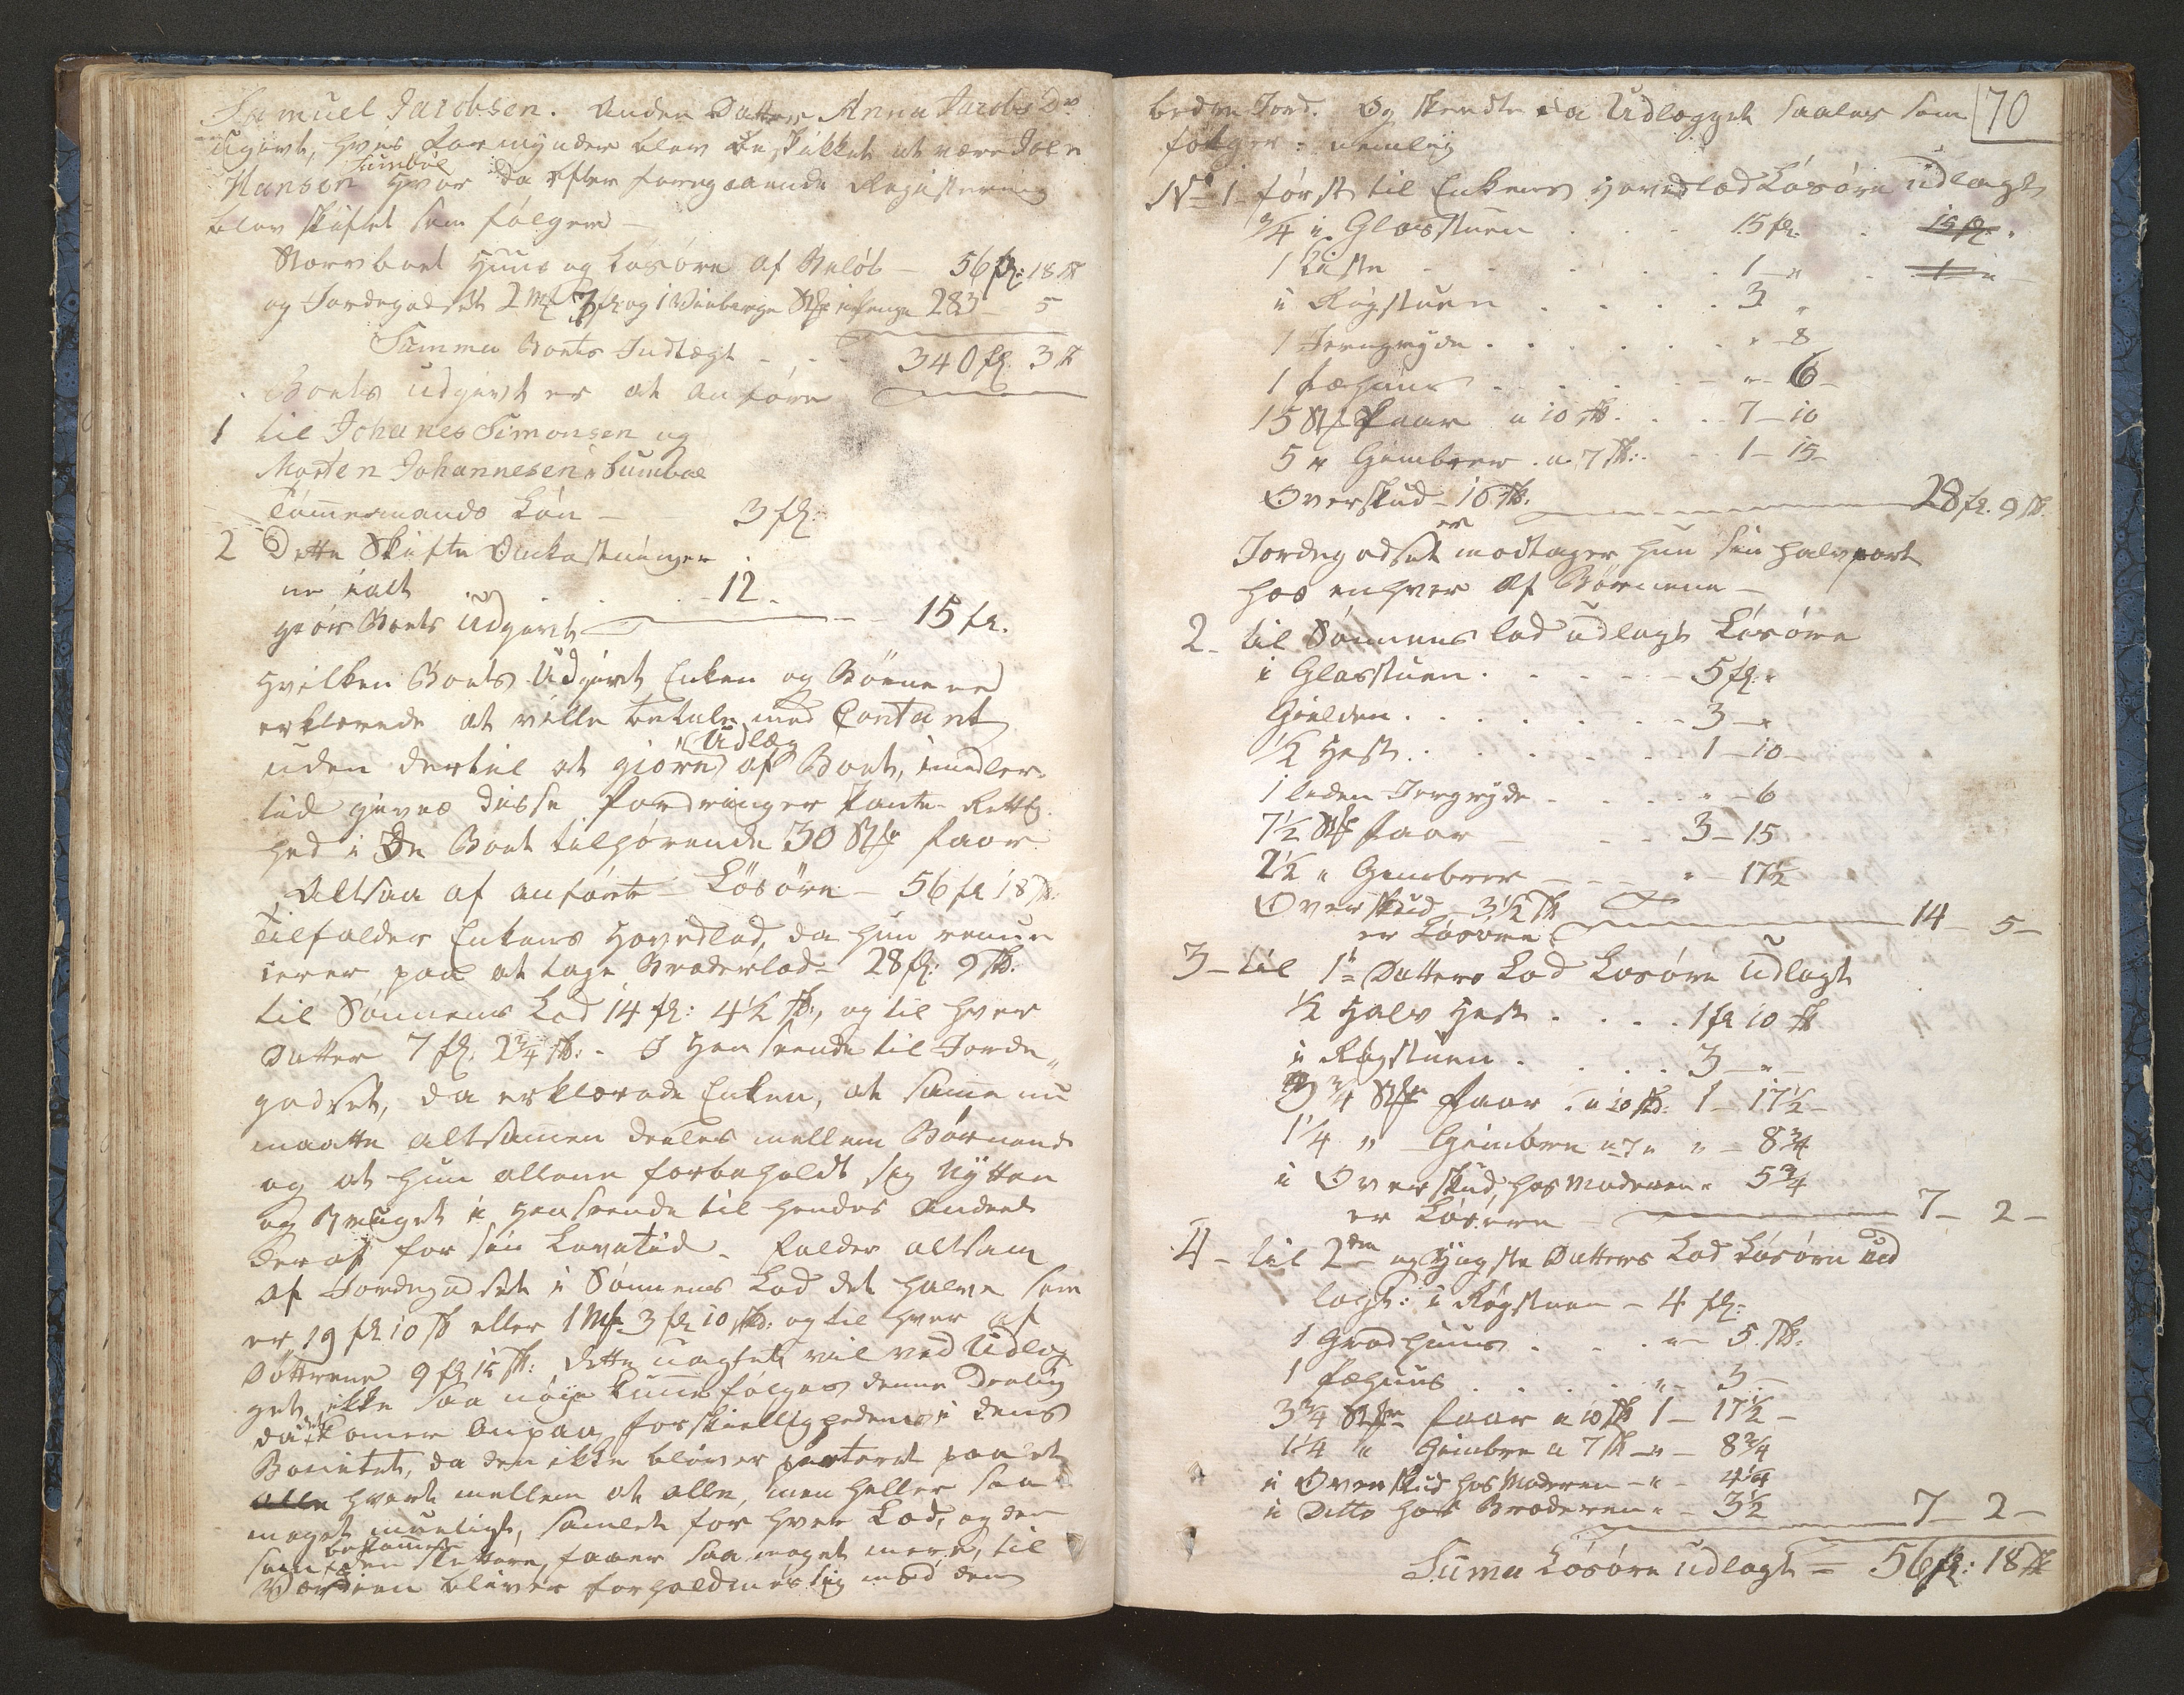 Samuel Jacobsen. Anden Datter Anna Jacobs Dr
ugivt, hvis Formynder blev beskikket at være Joen
Sumbøe
Hansen Hvor da efter foregaaende Registrering
blev skiftet som følger
Stervboet Huus og Løsøre af Beløb – 56 fl: 18 sk
og Jordegodset 2 Mk 7 fl og 283 – 5
Summa Boets Indtægt – – 340 fl. 3 sk
Boets udgivt er at anføre
1 til Johanes Simonsen og
Morten Johannesen i Sumbøe
Tømmermands Løn – 3 fl:
2 Dette Skifte Omkostninger
ne ialt – 12 –
giør Boets Udgivt – 15 fl.
Hvilken Boets Udgivt Enken og Børnene
erklærede at ville betale med Contant
Udlæg
uden dertil at giøre af Boet, imidler
tid gives disse Fordringer Pante-Rettig
hed i De Boet tilhørende 30 Stk Faar
Altsaa af anførte Løsøre – 56 fl 18 sk:
Tilfalder Enkens Hovedlod, da hun renun
cerer paa at tage Broderlod – 28 fl: 9 sk:
til Sønnens Lod 14 fl: 4½ sk:, og til hver
Datter 7 fl. 2¼ sk: – I Henseende til Jorde
godset, da erklærede Enken, at samme nu
maatte altsammen deeles mellem Børnene
og at hun allene forbeholdt sig Nytten
og Bruget i henseende til hendes Andeel
deraf for sin Levetid – falder altsaa
af Jordegodset i Sønnens Lod det halve som
er 19 fl 10 sk eller 1 Mk 3 fl 10 sk: og til hver af
Døttrene 9 fl 15 sk: dette uagtet vil ved Udlæg
get ikke saa nøie kunne følges denne Deeling
da det kommer anpaa forskielligheden i dens
Bonitet, da den ikke bliver parteret paa et
alle hvert mellem at alle, men heller saa
meget mueligt, samlet for hver Lod, og den
bekommer
som den slettere, faaer saa meget mere, til
Værdien bliver forholdmessig med den
70
bedre Jord. Og skeedte da Udlægget saales som
følger: nemlig
No 1 først til Enkens Hovedlod Løsøre udlagt
¾ i Glasstuen . . . 15 fl. . 15 fl.
1 Kiste . . . 1 – " . 1 "
i Røgstuen . . . . 3 "
1 Jerngryde . . . . . " – 8
1 Fæhuus . . . . " – 6 –
15 Stk Faar a 10 sk . . 7 – 10
5 " Gimbrer a 7 sk: . 1 – 15 –
Overskud – 16 sk. 28 fl. 9 sk.
er
Jordegodset modtager hun sin halvpart
hos enhver af Børnene –
2 – til Sønnens lod udlagt Løsøre
i Glasstuen . . . . – 5 fl: "
Gielden . . . . . – 3 – "
½ Hest . . . . – 1 – 10 –
1 liden Jergryde – . . " – 6
7½ Stk Faar – – 3 – 15
2½ " Gimbrer – – " – 17½
Overskud 3½ sk
er Løsøre – 14 – 5 –
3 – til 1te Datters Lod Løsøre Udlagt
½ Halv Hest . . . . 1 fl 10 sk
i Røgstuen . . . . 3 – " –
3¾ Stk Faar . a 10 sk: 1 – 17½ –
1¼ " Gimbre a 7 " " – 8¾
i Overskud, hos Moderen " 5¾
er Løsøre – 7 – 2 –
4 – til 2den og Yngste Datters Lod Løsøre ud
lagt: i Røgstuen – 4 fl:
1 huus . . . " – 5 sk:
1 Fæhuus . . . . " – 3 –
3¾ Stk Faar a 10 sk 1 – 17½ –
1¼ " Gimbre a 7 sk – " – 8¾
i Overskud hos Moderen – " – 4¼
i Ditto hos Broderen " – 3½ 7 – 2 –
Suma Løsøre udlagt = 56 fl: 18 sk